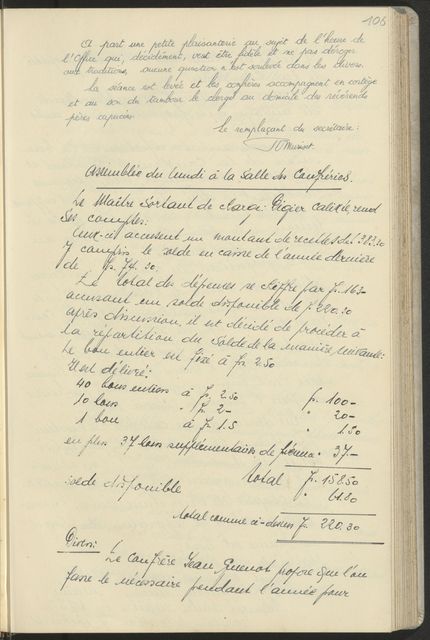 106
A part une petite plaisanterie au sujet de l'heure de
l'Office qui, décidément, veut être fidèle et ne pas déroger
aux traditions, aucune question n'est soulevée dans les divers.
La séance est levée et les confrères accompagnent en cortège
et au son du tambour le clergé au domicile des révérends
pères capucins.
Le remplaçant du secrétaire:
Assemblée du Lundi à la Salle des Confréries.
Le Maître Sortant de charge: Gigier Calixte, rend
ses comptes:
Ceux-ci accusent un montant de recettes de f. 383.30
y compris le solde en caisse de l'année dernière
de fr. 74.30.
Le total des dépenses se chiffre par f. 163.-
accusant un solde disponible de f. 220.30
après discussion, il est décidé de procéder à
la répartition du Solde de la manière suivante:
Le bon entier est fixé à fr. 2.50
Il est délivré:
40 bons entiers à fr. 2.50 fr. 100.-
10 bons " fr. 2.- " 20.-
1 bon à fr. 1.5 " 1.50
en plus 37 bons supplémentaires de " 37.-
total fr. 158.50
solde disponible " 61.80
total comme ci-dessus fr. 220.30
Divers: Le Confrère Jean Quenot propose que l'on
fasse le nécessaire pendant l'année pour